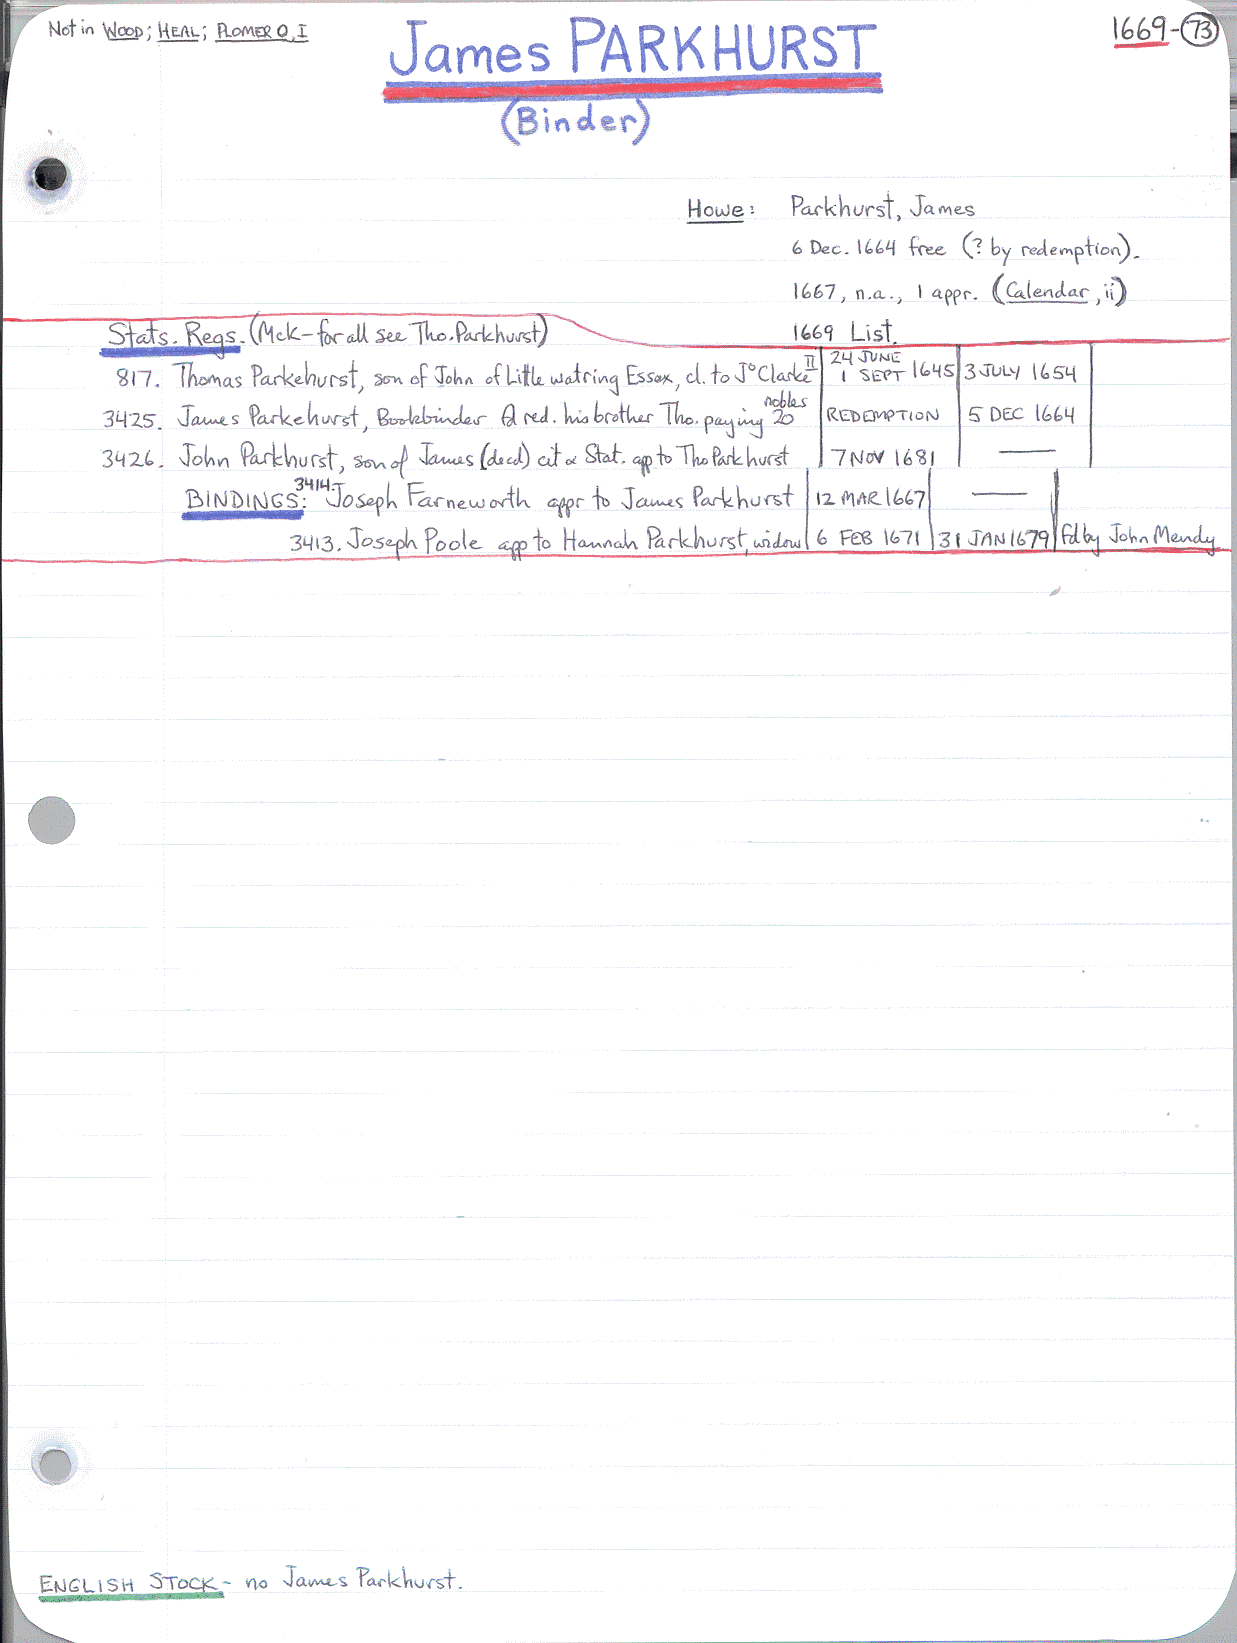 Not in WOOD; HEAL; PLOMER O, I
James PARKHURST
1669-73
(Binder)
Howe: Parkhurst, James
6 Dec. 1664 free (? by redemption).
1667, n.a., 1 appr. (Calendar, ii)
1669 List.
Stats. Regs. (McK-for all see Tho. Parkhurst)
817. Thomas Parkehurst, son of John of Little watring Essex, cl. to Jº Clarke II 24 JUNE 1 SEPT 1645 3 JULY 1654
3425. James Parkehurst, Bookbinder red. his brother Tho. paying 20 nobles REDEMPTION 5 DEC 1664
3426. John Parkhurst, son of James (decd) cit & Stat. app to Tho Parkhurst 7 NOV 1681 —
BINDINGS: 3414. Joseph Farneworth appr to James Parkhurst 12 MAR 1667 —
3413. Joseph Poole app to Hannah Parkhurst, widow 6 FEB 1671 31 JAN 1679 Fd by John Mendy
ENGLISH STOCK - no James Parkhurst.